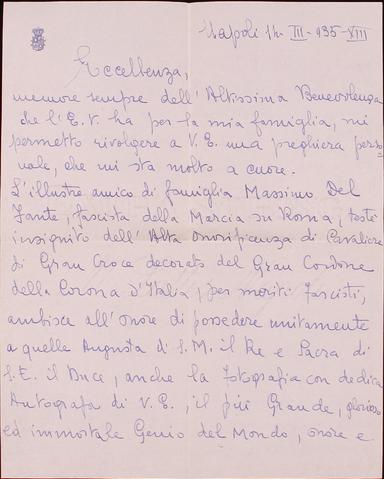 Napoli 14 III - 935 - XIII
Eccellenza,
memore sempre dell'Altissima Benevolenza
che l'E.V. ha per la mia famiglia, mi
permetto rivolgere a V.E. una preghiera perso
nale, che mi sta molto a cuore.
L'illustre amico di famiglia Massimo Del
Fante, fascista della Marcia su Roma, testé
insignito dell'Alta Onorificenza di Cavaliere
di Gran Croce decorato del Gran Cordone
della Corona d'Italia, per meriti fascisti,
ambisce all'onore di possedere unitamente
a quelle Augusta di S.M. il Re e Sacra di
S.E. il Duce, anche la fotografia con dedica
Autografa di V.E., il più Grande, glorioso
ed immortale Genio del Mondo, onore e